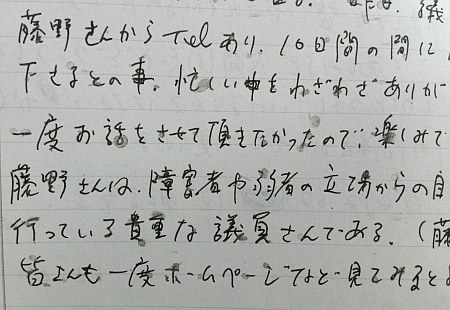 藤野さんからTelあり、10日間の間に
下さるとの事、忙しい中をわざわざありが
一度お話をさせて頂きたかったので、楽しみで
藤野さんは、障害者や弱者の立場からの自
行っている貴重な議員さんである。(藤
皆さんも一度ホームページなど見てみると